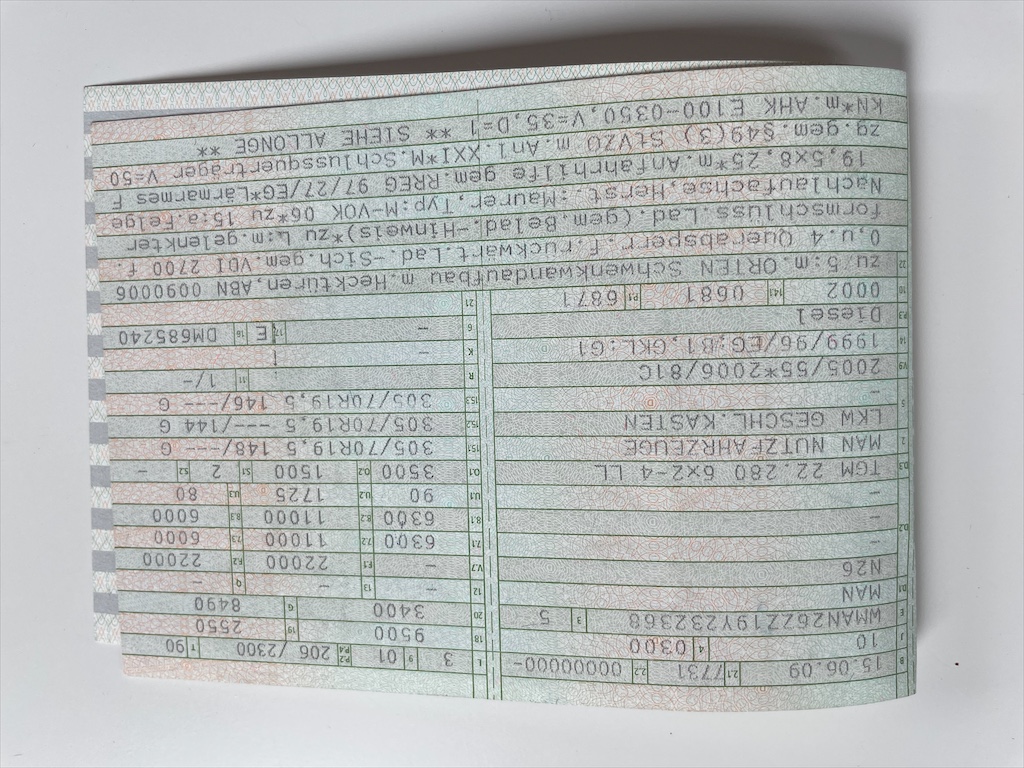 B 15.06.09 2.1 7731 2.2 00000000-
J 10 4 0300
E WMAN26ZZ19Y232368 3 5
D.1 MAN
N26
D.2 -
-
-
D.3 TGM 22.280 6x2-4 LL
2 MAN NUTZFAHRZEUGE
5 LKW GESCHL.KASTEN
-
V.9 2005/55*2006/81C
14 1999/96/EG;B1,GKL:G1
P.3 Diesel
10 0002 14.1 0681 P.1 6871
L 3 9 01 P.2 P.4 206 /2300 T 90
18 9500 19 2550
20 3400 G 8490
12 - 13 - Q -
V.7 F.1 22000 F.2 22000
7.1 6300 7.2 11000 7.3 6000
8.1 6300 8.2 11000 8.3 6000
U.1 90 U.2 1725 U.3 80
O.1 3500 O.2 1500 S.1 2 S.2 -
15.1 305/70R19,5 148/--- G
15.2 305/70R19,5 ---/144 G
15.3 305/70R19,5 146/--- G
R 11 1/-
K -
6 - 17 E 16 DM685240
21
22 zu 5:m.ORTEN Schwenkwandaufbau m.Hecktüren,ABN 0090006
0,u.4 Querabsperr.f.rückwärt.Lad.-Sich.gem.VDI 2700 f.
formschlüss.Lad.(gem.Belad.-Hinweis)*zu L:m.gelenkter
Nachlaufachse,Herst.:Maurer,Typ:M-VOK 06*zu 15:a.Felge
19,5x8,25*m.Anfahrhilfe gem.RREG 97/27/EG*Lärmarmes F
zg.gem.§49(3) StVZO m.Anl.XXI*M.Schlussquerträger V=50
KN*m.AHK E100-0350,V=35,D=1 ** SIEHE ALLONGE **